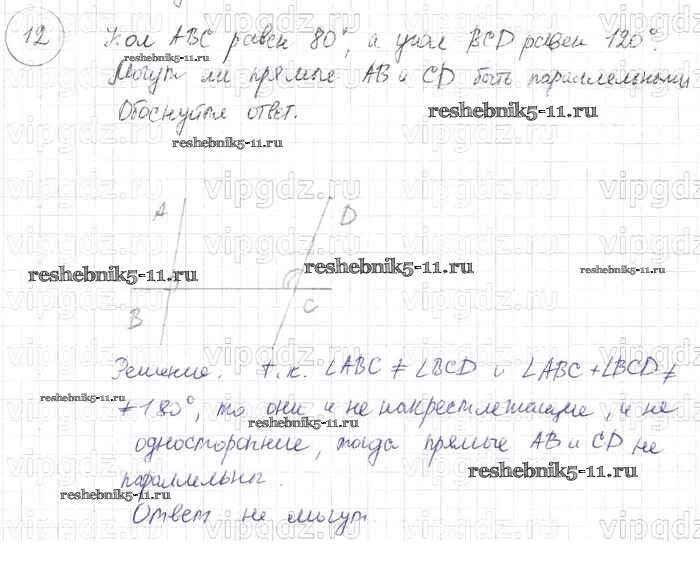 12 Угол ABC равен 80°, а угол BCD равен 120°.
reshebnik5-11.ru
Могут ли прямые AB и CD быть параллельными
Обоснуйте ответ.
reshebnik5-11.ru
reshebnik5-11.ru
vipgdz.ru vipgdz.ru vipgdz.ru vipgdz.ru
A D
reshebnik5-11.ru reshebnik5-11.ru reshebnik5-11.ru
B C
Решение. т.к. ∠ABC ≠ ∠BCD и ∠ABC + ∠BCD ≠
reshebnik5-11.ru
≠ 180°, то они и не накрестлежащие, и не
reshebnik5-11.ru
односторонние, тогда прямые AB и CD не
reshebnik5-11.ru
параллельны.
reshebnik5-11.ru
Ответ не могут.